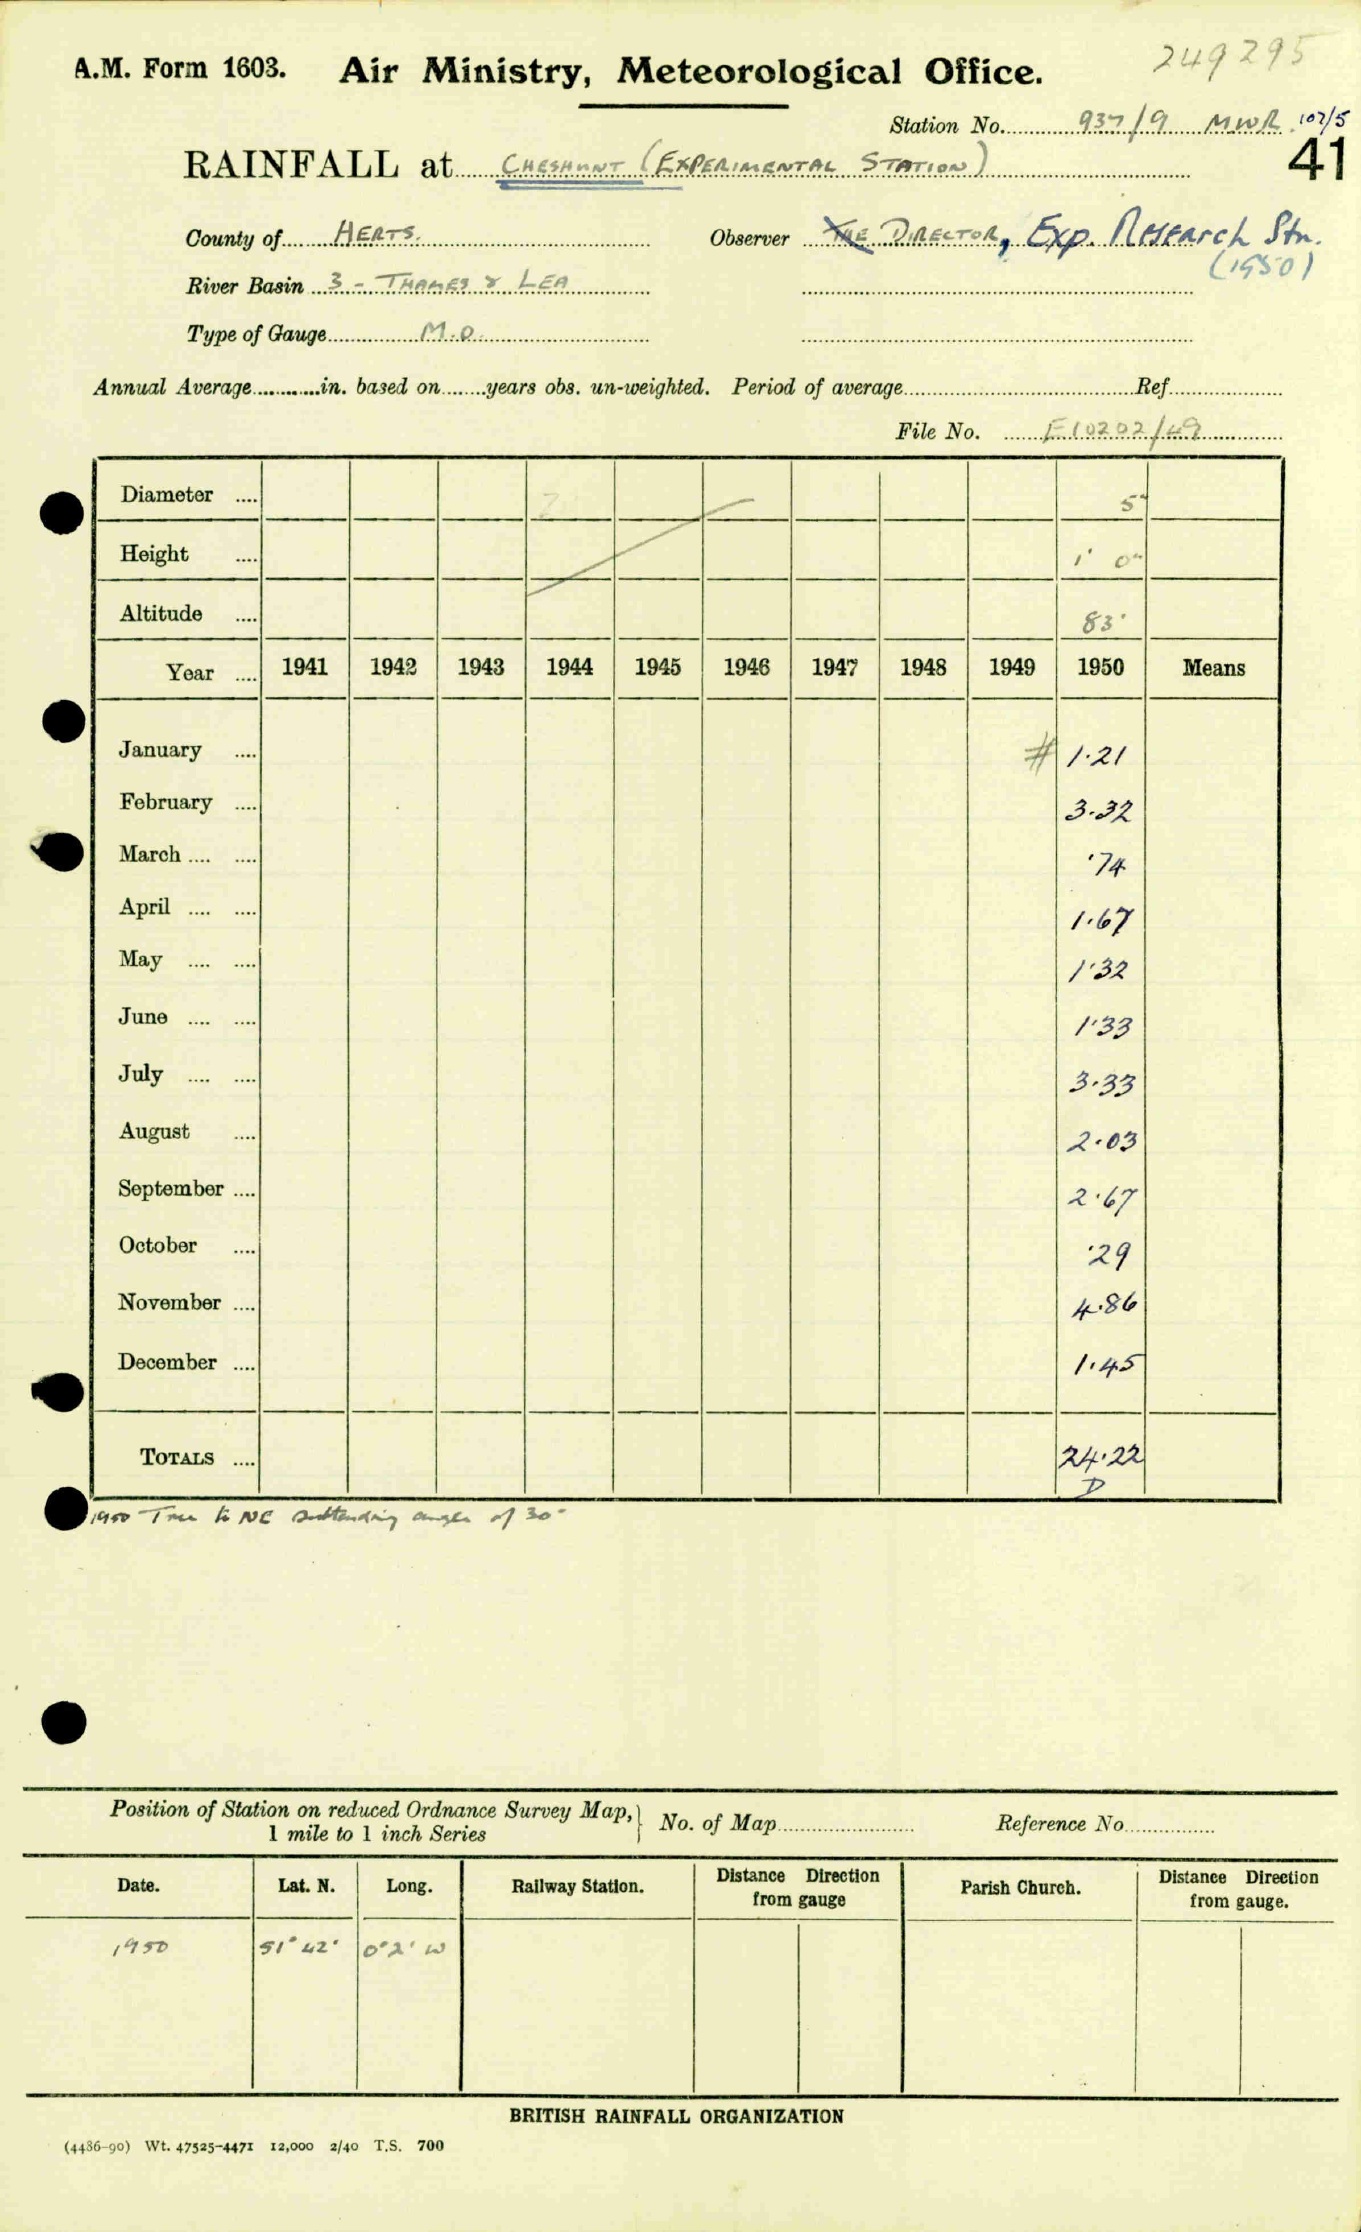 249295
A.M. Form 1603. Air Ministry, Meteorological Office.
Station No. 937/9 MWR 107/5
RAINFALL at CHESHUNT (EXPERIMENTAL STATION) 41
County of HERTS. Observer THE DIRECTOR, Exp. Research Stn.
(1950)
River Basin 3 - THAMES & LEA
Type of Gauge M.O.
Annual Average............in. based on.......years obs. un-weighted. Period of average Ref.
File No. E10202/49
Diameter .... 5"
Height .... 1' 0"
Altitude .... 83'
Year .... 1941 1942 1943 1944 1945 1946 1947 1948 1949 1950 Means
January .... # 1.21
February .... 3.32
March .... .... .74
April .... .... 1.67
May .... .... 1.32
June .... .... 1.33
July .... .... 3.33
August .... 2.03
September .... 2.67
October .... .29
November .... 4.86
December .... 1.45
TOTALS .... 24.22
D
1950 Tree to NE subtending angle of 30°
Position of Station on reduced Ordnance Survey Map,} No. of Map Reference No.
1 mile to 1 inch Series
Date. Lat. N. Long. Railway Station. Distance Direction from gauge Parish Church. Distance Direction from gauge.
1950 51° 42' 0° 2' W
BRITISH RAINFALL ORGANIZATION
(4486-90) Wt. 47525-4471 12,000 2/40 T.S. 700